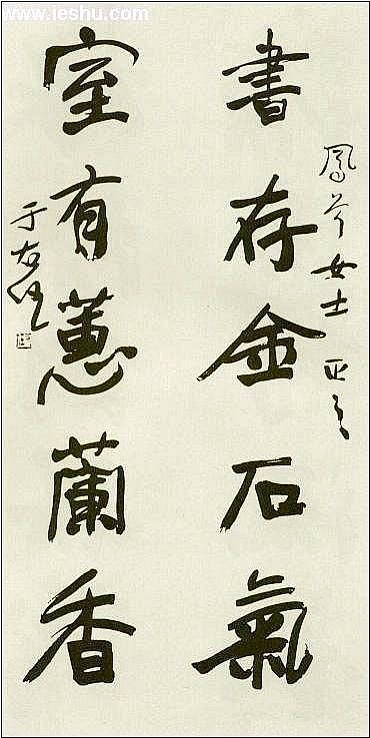 www.ieshu.com
鳳女士 正之
書存金石氣
室有蕙蘭香
于右任